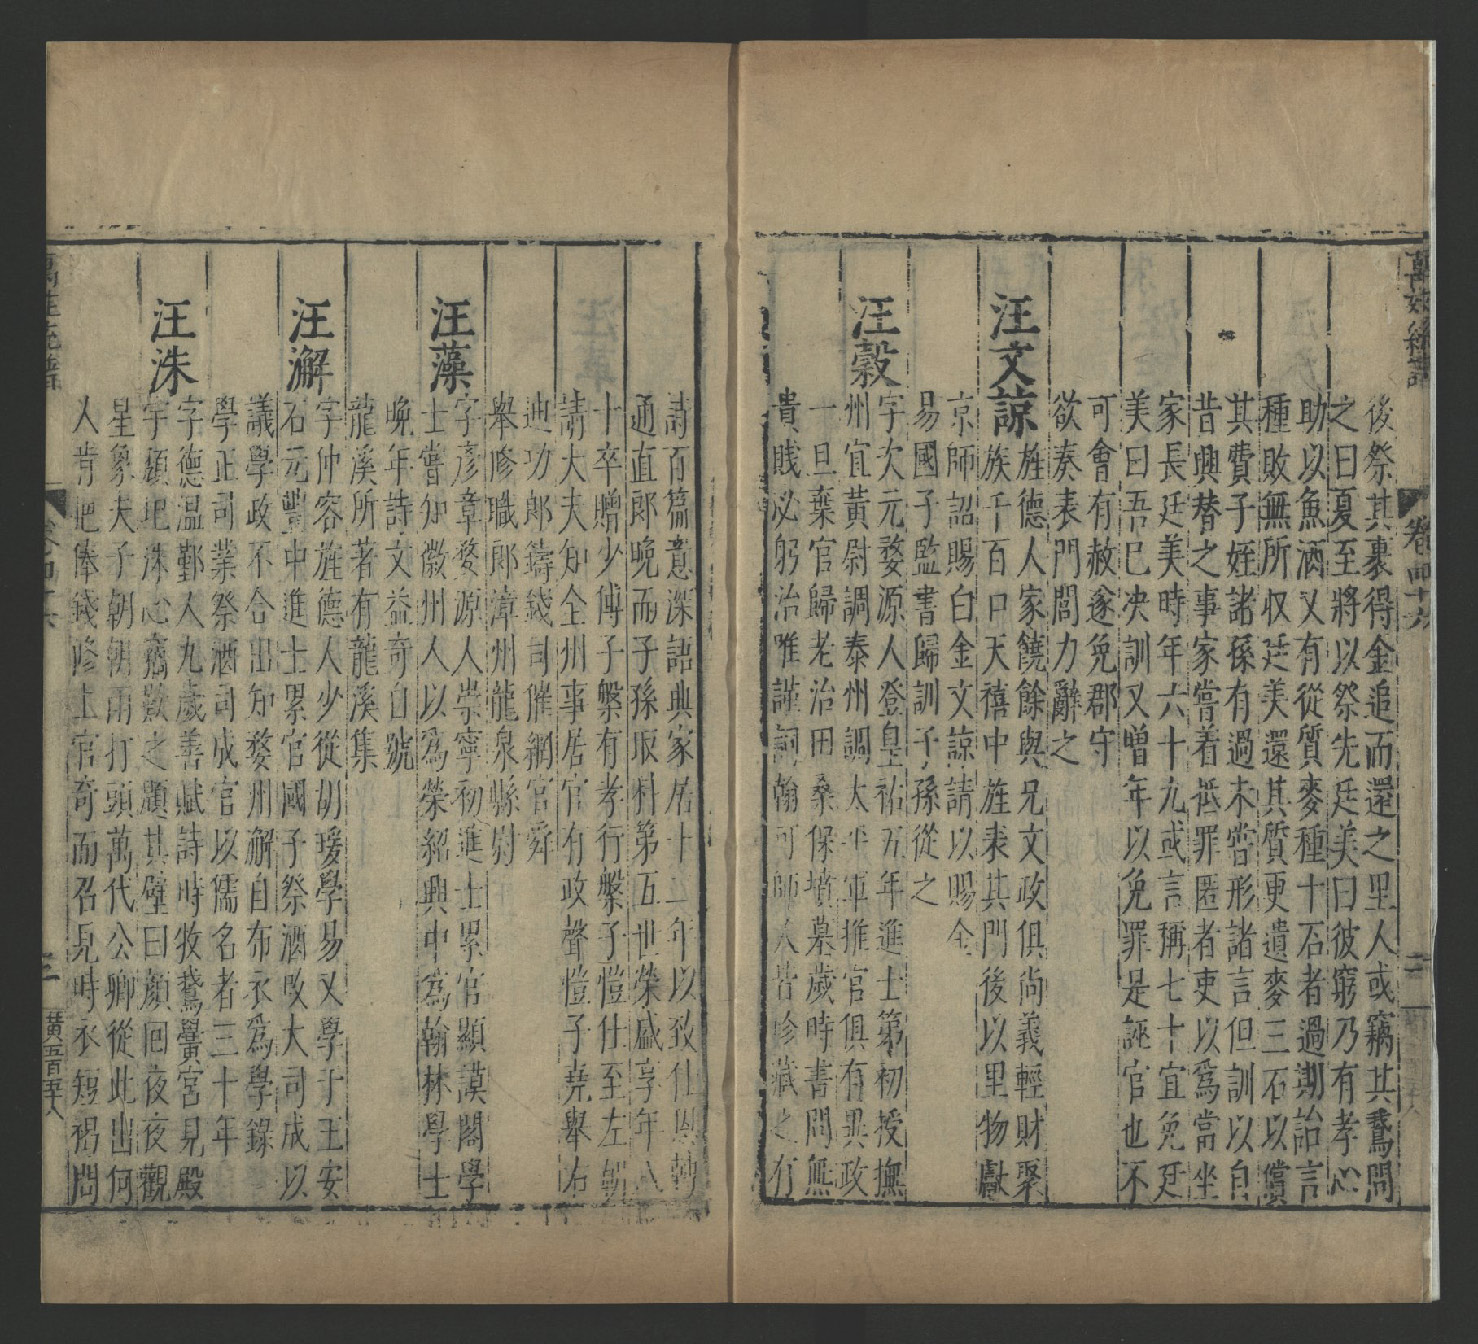 萬姓統譜
卷四十六
二
後祭其裏得金追而還之里人或竊其鵞問
之曰夏至將以祭先廷美曰彼窮乃有孝心
助以魚酒又有從質麥種十石者過期詒言
種敗無所収廷美還其質更遺麥三石以償
其費子姪諸孫有過未嘗形諸言但訓以自
昔興替之事家嘗着袛罪匿者吏以為當坐
家長廷美時年六十九或言稱七十宜免廷
美曰吾巳失訓又增年以免罪是誣官也不
可會有赦遂免郡守
欲奏表門閭力辭之
汪文諒旌德人家饒餘與兄文政俱尚義輕財聚
族千百口天禧中旌表其門後以里物獻
京師詔賜白金文諒請以賜金
易國子監書歸訓子孫從之
汪穀字次元婺源人登皇祐五年進士第初授撫
州宜黃尉調泰州調太平軍推官俱有異政
一旦棄官歸老治田桑保墳墓歲時書問無
貴賤必躬治唯謹詞翰可師人皆珍藏之有
詩百篇意深語典家居十二年以致仕恩轉
通直郎晚而子孫取科第五世榮盛享年八
十卒贈少傅子槃有孝行槃子愷仕至左朝
請大夫知全州事居官有政聲愷子堯舉右
迪功郎鑄錢司催綱官舜
舉修職郎漳州龍泉縣尉
汪藻字彥章婺源人崇寧初進士累官顯謨閣學
士嘗知徽州人以為榮紹興中為翰林學士
晚年詩文益奇自號
龍溪所著有龍溪集
汪澥字仲容旌德人少從胡瑗學易又學于王安
石元豐中進士累官國子祭酒改大司成以
議學政不合出知婺州澥自布衣為學錄
學正司業祭酒司成官以儒名者三十年
汪洙字德温鄞人九歲善賦詩時牧鵞黌宮見殿
宇頹圯洙心竊歎之題其壁曰顏囘夜夜觀
星象夫子朝朝雨打頭萬代公卿從此出何
人肯把俸錢修上官奇而召見時衣短褐問
萬姓統譜
卷四十六
三
黄五百五十八